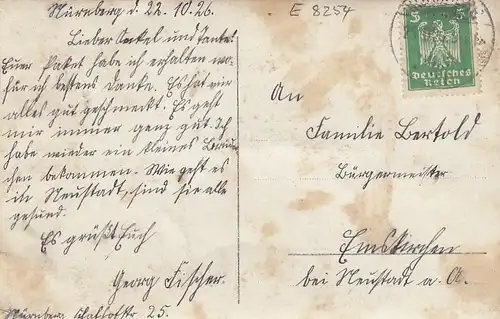 Nürnberg d. 22.10.26.
E 8254
Lieber Onkel und Tante!
Euer Paket habe ich erhalten wo-
für ich bestens danke. Es hat mir
alles gut geschmeckt. Es geht
mir immer ganz gut. Ich
habe wieder ein kleines Brüder-
chen bekommen. Wie geht es
in Neustadt, sind sie alle
gesund.
Es grüßt Euch
Georg Fischer.
Nürnberg 25.
5 5
Deutsches
Reich
An
Familie Bertold
Bürgermeister
Emskirchen
bei Neustadt a. A.